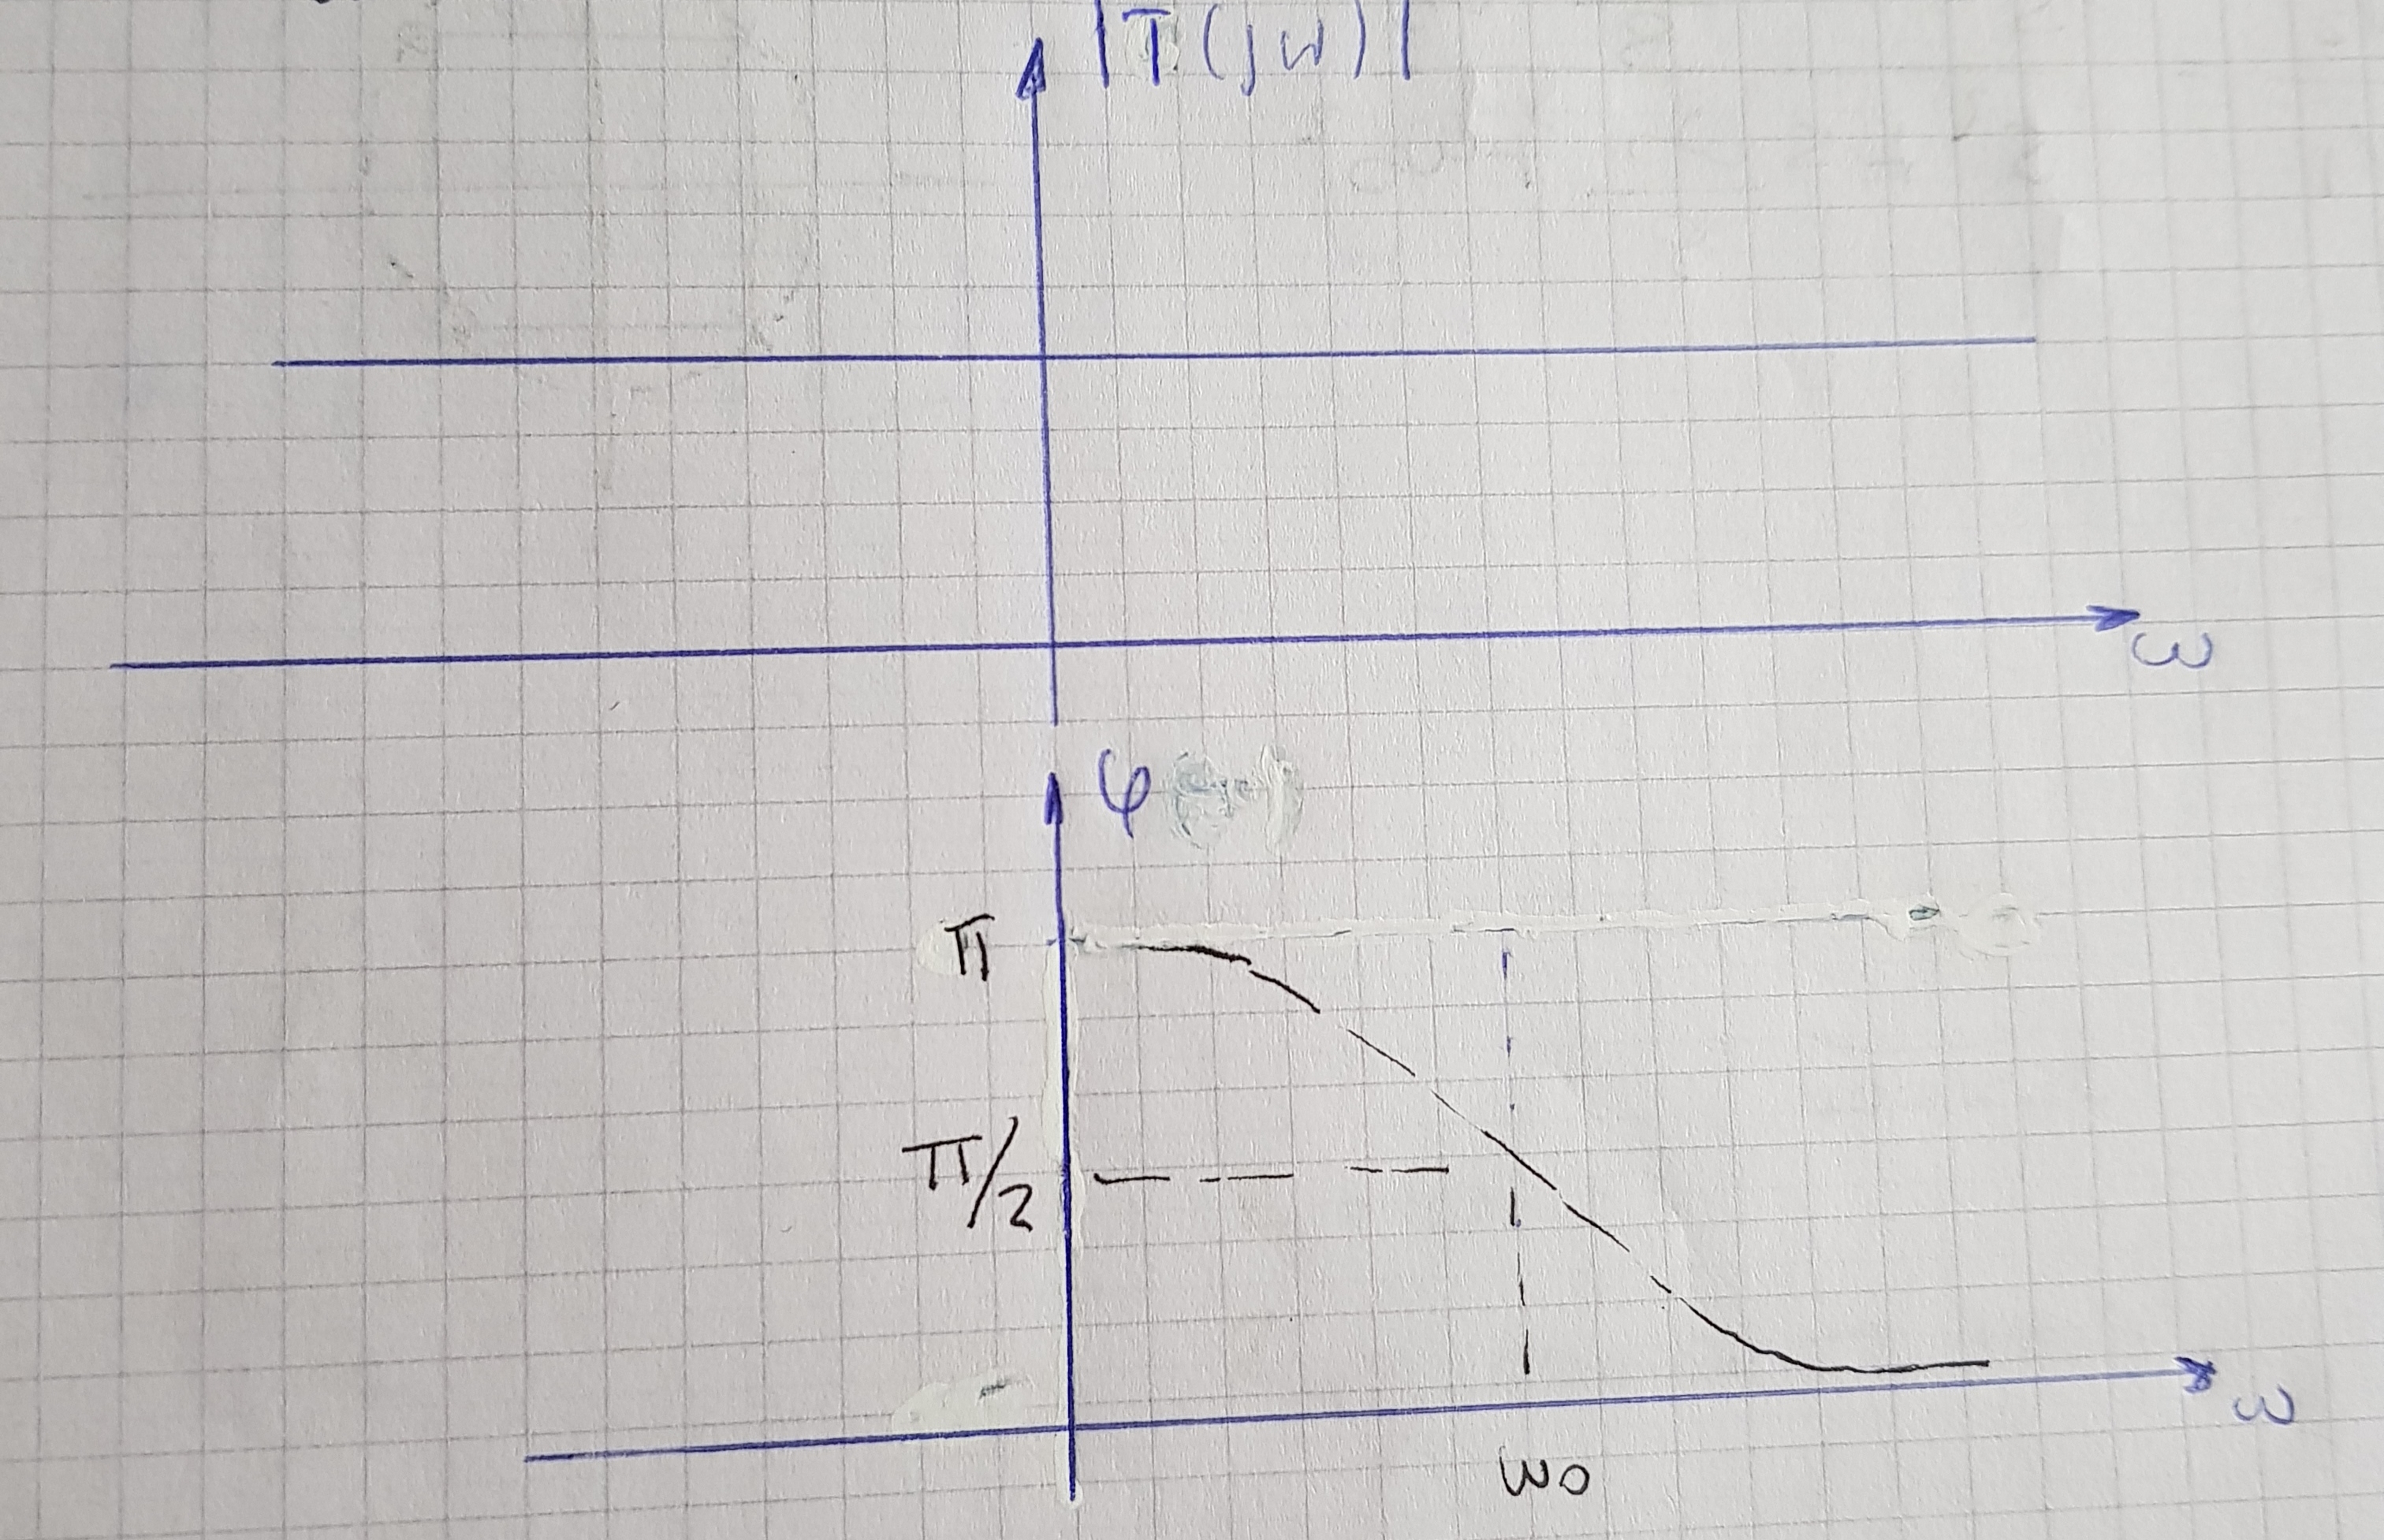 |T(jω)|
ω
φ
π
π/2
ω
ω0